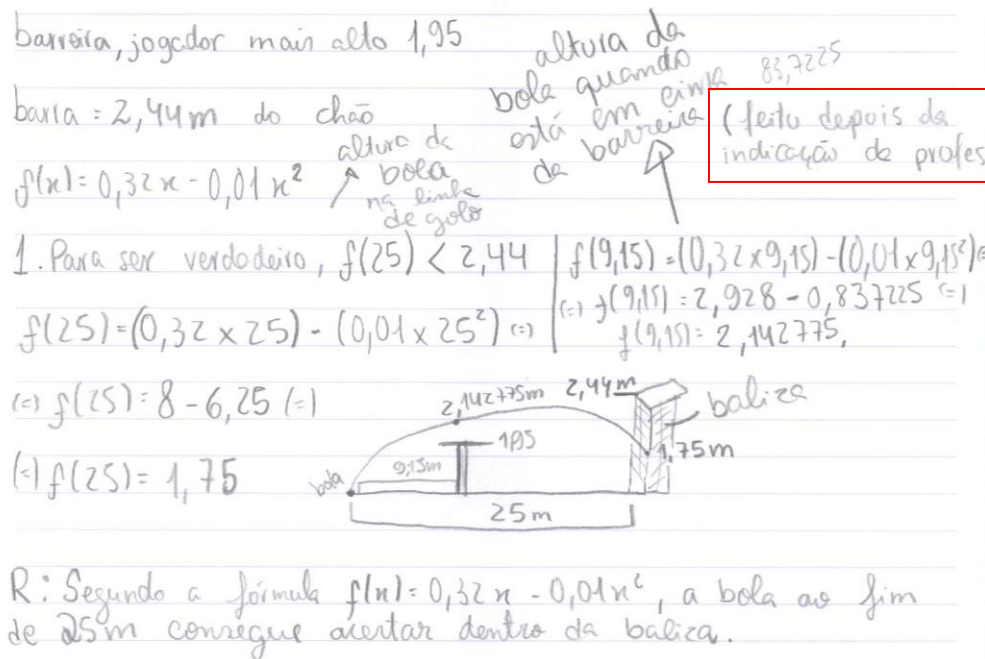 barreira, jogador mais alto 1,95
barra = 2,44m do chão
f(x) = 0,32x - 0,01x²
altura da
bola
na linha
de golo
altura da
bola quando
está em cima
da barreira
83,7225
(feito depois da
indicação de profes
1. Para ser verdadeiro, f(25) < 2,44
f(25) = (0,32 x 25) - (0,01 x 25²) (=)
(=) f(25) = 8 - 6,25 (=)
(=) f(25) = 1,75
f(9,15) = (0,32x9,15) - (0,01x9,15²) (=
(=) f(9,15) = 2,928 - 0,837225 (=)
f(9,15) = 2,142775,
2,142775m
2,44m
baliza
1,95
9,15m
1,75m
bola
25m
R: Segundo a fórmula f(x) = 0,32x - 0,01x², a bola ao fim
de 25m consegue acertar dentro da baliza.